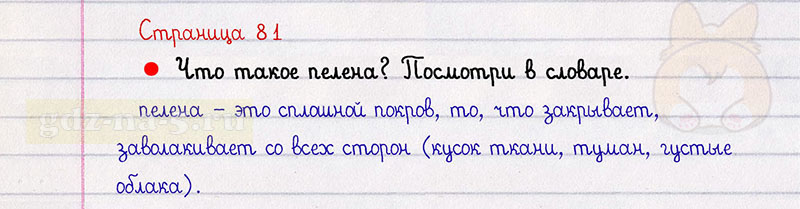 Страница 81
Что такое пелена? Посмотри в словаре.
пелена – это сплошной покров, то, что закрывает,
заволакивает со всех сторон (кусок ткани, туман, густые
облака).